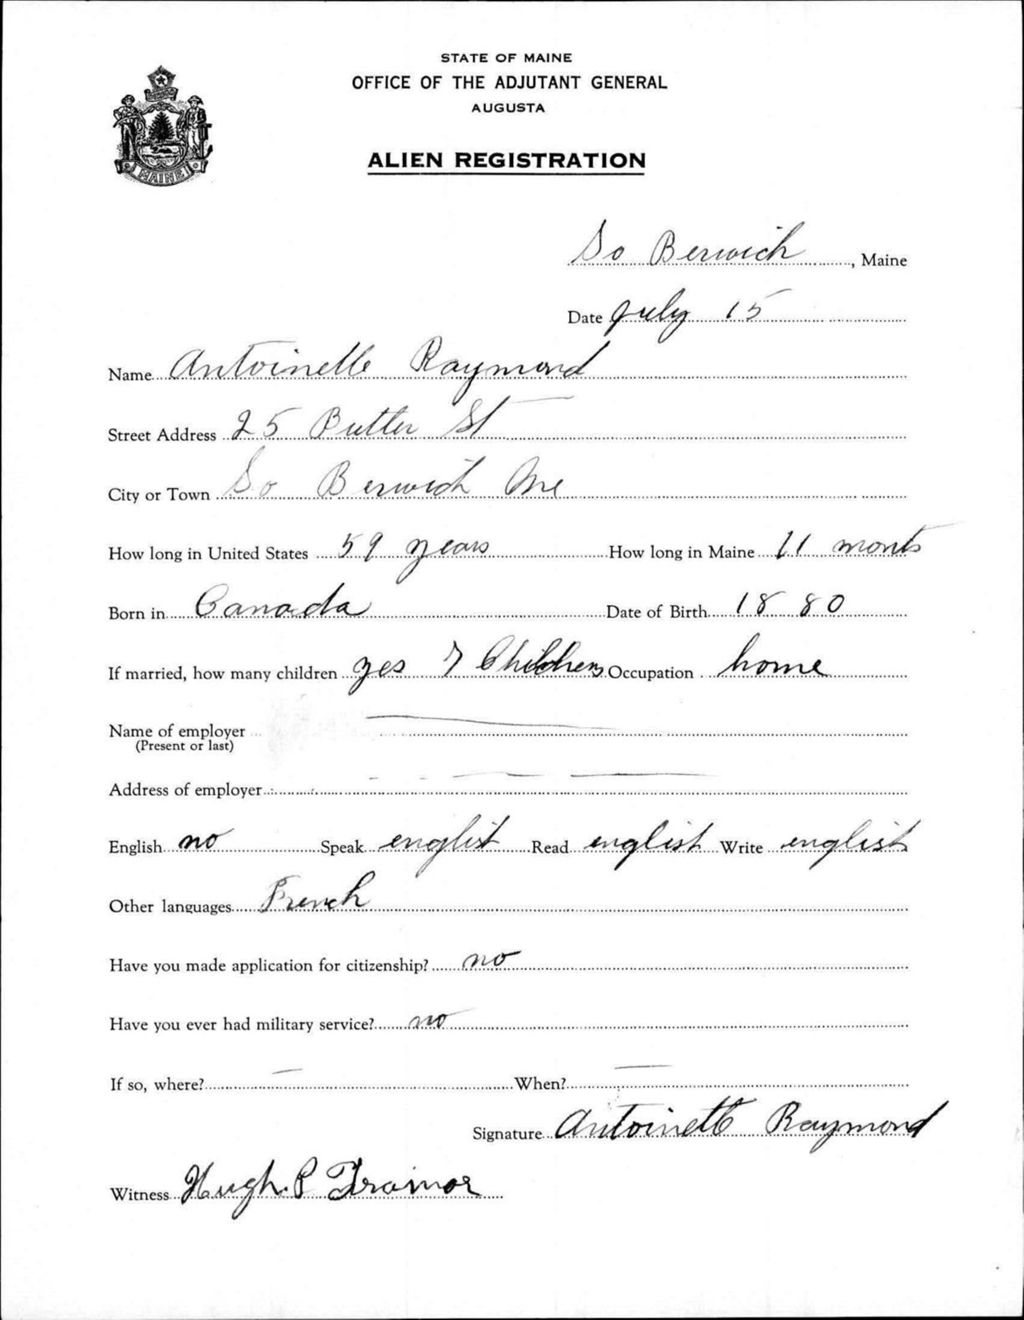 STATE OF MAINE
OFFICE OF THE ADJUTANT GENERAL
AUGUSTA
ALIEN REGISTRATION
MAINE
So Berwick, Maine
Date July 15
Name Antoinette Raymond
Street Address 25 Butler St
City or Town So Berwick Me
How long in United States 59 years How long in Maine 11 monts
Born in Canada Date of Birth 1880
If married, how many children yes 7 Children Occupation home
Name of employer
(Present or last)
Address of employer
English no Speak english Read english Write english
Other languages French
Have you made application for citizenship? no
Have you ever had military service? no
If so, where? — When? —
Signature Antoinette Raymond
Witness Hugh. P Trainor